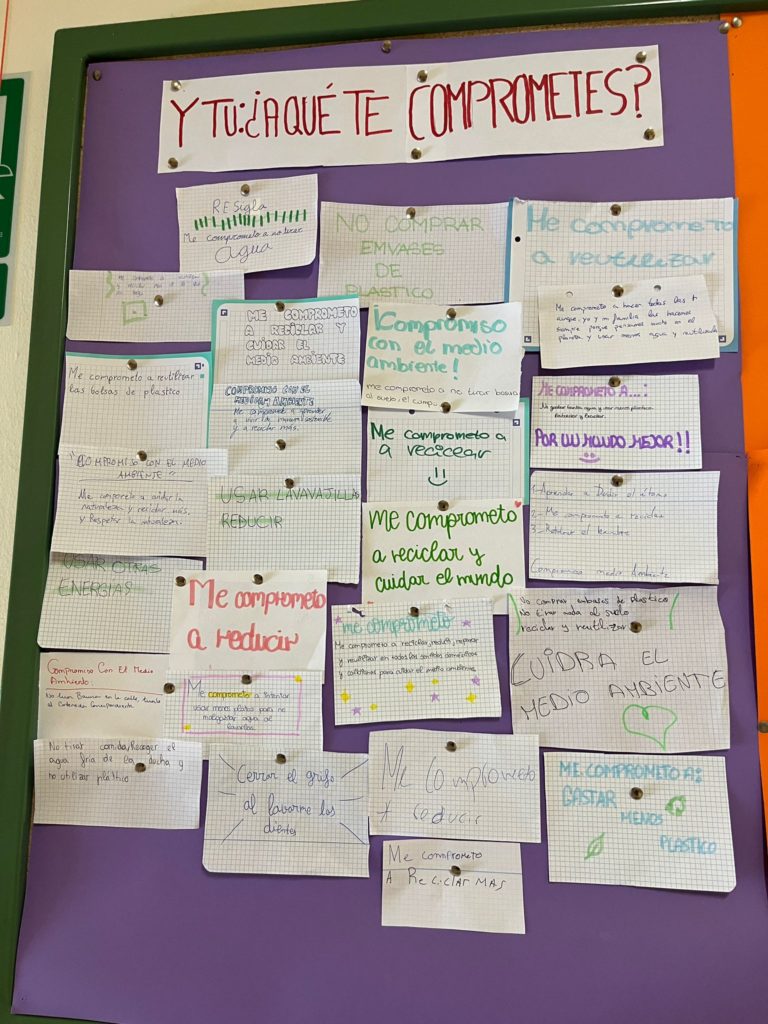 Y TU:¿A QUÉ TE COMPROMETES?
RESigla
Me comprometo a no tirar
agua
NO COMPRAR
EMVASES
DE
PLASTICO
Me comprometo
a reutilizar
Me comprometo a hacer todas las
aunque yo y mi familia las hacemos
siempre porque pensamos mucho en el
planeta y usar menos agua y reutilizarla
ME COMPROMETO
A RECICLAR Y
CUIDAR EL
MEDIO AMBIENTE
COMPROMISO CON EL
MEDIO AMBIENTE
Me comprometo a aprender
a vivir de manera sostenible
y a reciclar más.
¡Compromiso
con el medio
ambiente!
me comprometo a no tirar basura
al suelo, el campo
Me comprometo a reutilizar
las bolsas de plastico
Me comprometo a
a recicear
ME COMPROMETO A...:
No gastar tanta agua y usar menos plastico.
Reducir y Reciclar.
POR UN MUNDO MEJOR!!
¿COMPROMISO CON EL MEDIO
AMBIENTE?
Me comprometo a cuidar la
naturaleza y reciclar más.
y Respetar la naturaleza.
USAR LAVAVAJILLAS
REDUCIR
ME comprometo
a reciclar y
cuidar el mundo
2-Me comprometo a reciclar
Compromiso medio Ambiente
USAR OTRAS
ENERGÍAS
Me comprometo
a reducir
me comprometo
Me comprometo a reciclar, reducir, reparar
y reutilizar en todos los sentidos domésticos
y cotidianos para cuidar el medio ambiente
No comprar embases de plastico
No tirar nada al suelo
reciclar y reutilizar
CUIDRA EL
MEDIO AMBIENTE
Compromiso Con El Medio
Ambiente.
No tirar Basura en la calle,
al Contenedor Correspondiente
Me comprometo a intentar
usar menos platos para no
malgastar agua al
lavarlos.
No tirar comida, Recoger el
agua fria de la ducha y
no utilizar plástico
Cerrar el grifo
al lavarme los
dientes
Me Comprometo
+ reducir
ME COMPROMETO A:
GASTAR
MENOS
PLASTICO
Me comprometo
A ReciclAR MAS